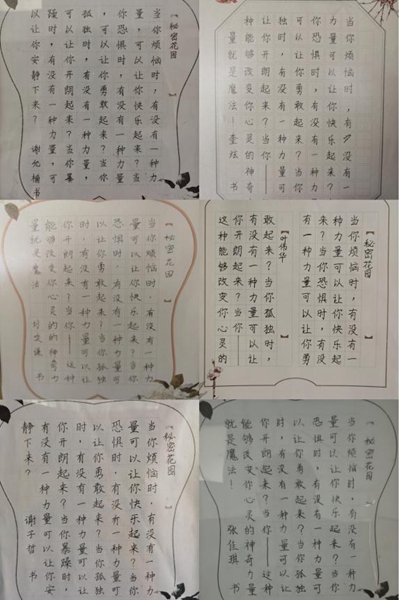 【秘密花园】
当你烦恼时，有没有一种力
量，可以让你快乐起来？当
你恐惧时，有没有一种力量
，可以让你勇敢起来？当你
孤独时，有没有一种力量，可
以让你开朗起来？当你暴
躁时，有没有一种力量，可
以让你安静下来？ 书
当你烦恼时，有没有一
种力量可以让你快乐起来？当
你恐惧时，有没有一种力量
可以让你勇敢起来？当你孤
独时，有没有一种力量可
以让你开朗起来？当你——这
种能够改变你心灵的神奇力
量就是魔法！ 书
【秘密花园】
当你烦恼时，有没有一种力
量可以让你快乐起来？当你
恐惧时，有没有一种力量可
以让你勇敢起来？当你孤独
时，有没有一种力量可以让
你开朗起来？当你——这种
能够改变你心灵的神奇力
量就是魔法 书
【秘密花园】
当你烦恼时，有没有一
种力量可以让你快乐起
来？当你恐惧时，有没
有一种力量可以让你勇
【叶伟华】
敢起来？当你孤独时，
有没有一种力量可以让
你开朗起来？当你——
这种能够改变你心灵的
【秘密花园】
当你烦恼时，有没有一种力
量可以让你快乐起来？当你
恐惧时，有没有一种力量可
以让你勇敢起来？当你孤独
时，有没有一种力量可以让
你开朗起来？当你暴躁时，
有没有一种力量可以让你安
静下来？ 谢子哲 书
【秘密花园】
当你烦恼时，有没有一种力
量可以让你快乐起来？当你
恐惧时，有没有一种力量可
以让你勇敢起来？当你孤独
时，有没有一种力量可以让
你开朗起来？当你——这种
能够改变你心灵的神奇力量
就是魔法！ 张佳琪 书